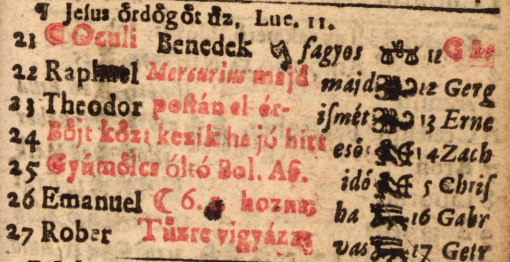 ¶ Jesus ŏrdŏgŏt űz, Luc. 11.
21 ☾ Oculi Benedek fagyos 11
22 Raphael Mercurius majd majd 12 Gerg
23 Theodor postán el ér- ismét 13 Erne
24 Bŏjt kŏzt kezik ha jó hirt esŏ 14 Zach
25 Gyümŏlcs óltó Bol. As. idó 5 Chris
26 Emanuel ☾ 6. hoznaj ha 16 Gabr
27 Rober Tüzre vigyázz vas 17 Getr